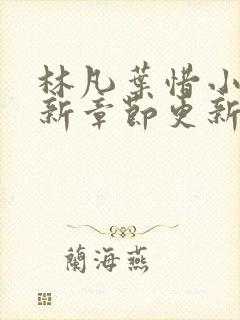 林凡葉惜小
新章節更新
蘭海燕